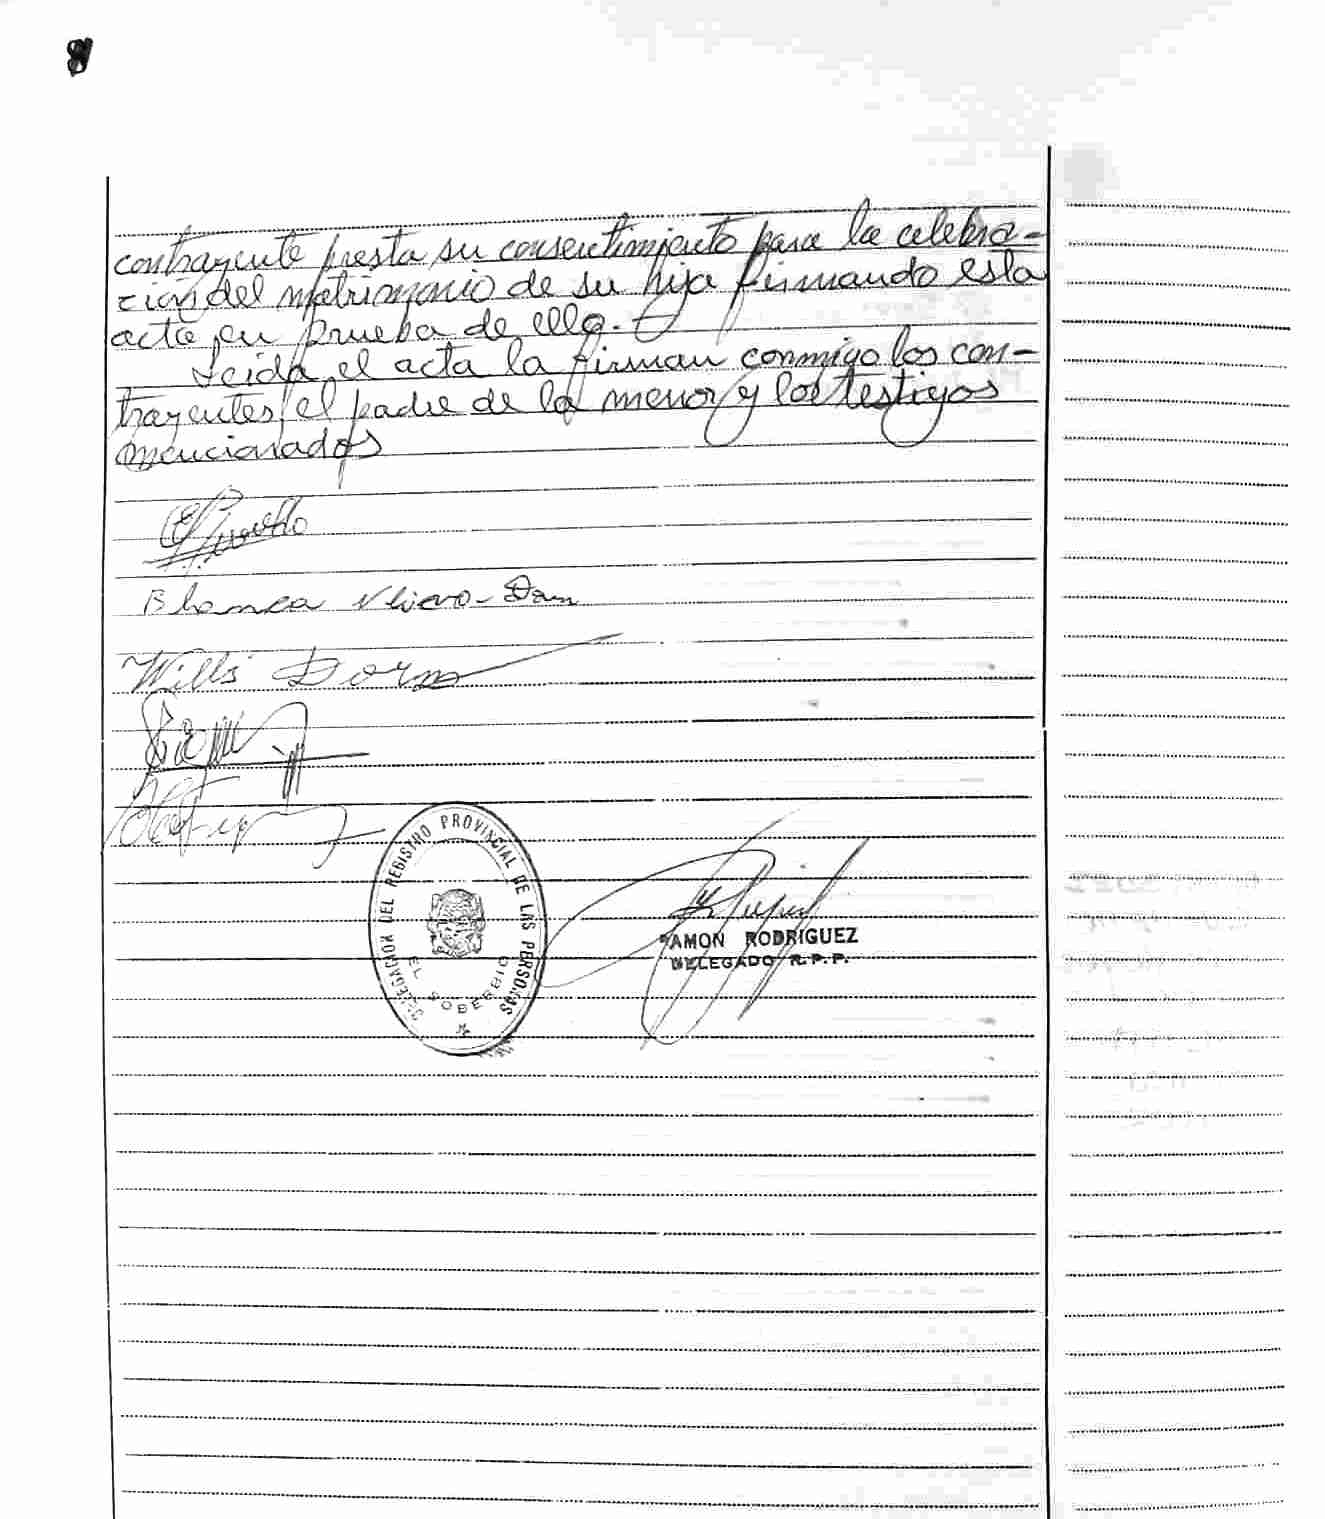 contrayente presta su consentimiento para la celebra-
ción del matrimonio de su hija firmando esta
acta en prueba de ello.-
Leida el acta la firman conmigo los con-
trayentes, el padre de la menor y los testigos
mencionados
Blanca
Wills Dorn
DELEGACION DEL REGISTRO PROVINCIAL DE LAS PERSONAS
EL SOBERBIO
RAMON RODRIGUEZ
DELEGADO R.P.P.